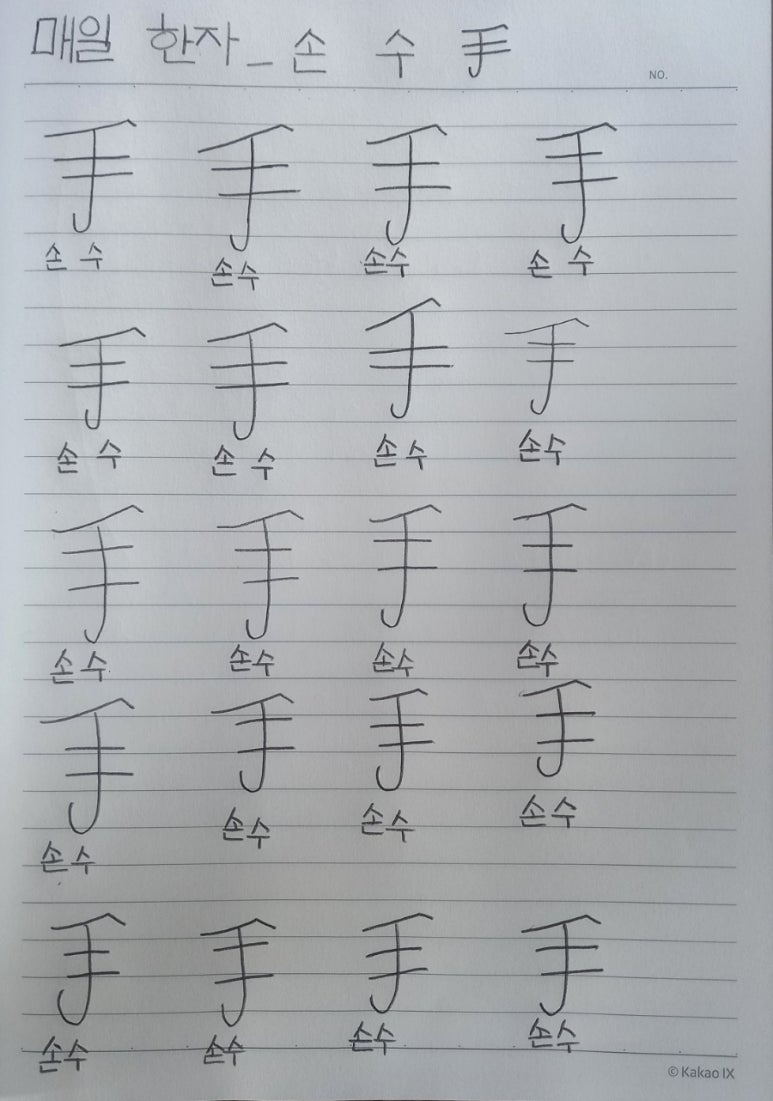 매일 한자_손 수 手
NO.
手 手 手 手
손 수 손수 손수 손 수
手 手 手 手
손 수 손 수 손 수 손수
手 手 手 手
손수 손수 손수 손수
手 手 手 手
손수 손수 손수 손수
手 手 手 手
손수 손수 손수 손수
© Kakao IX